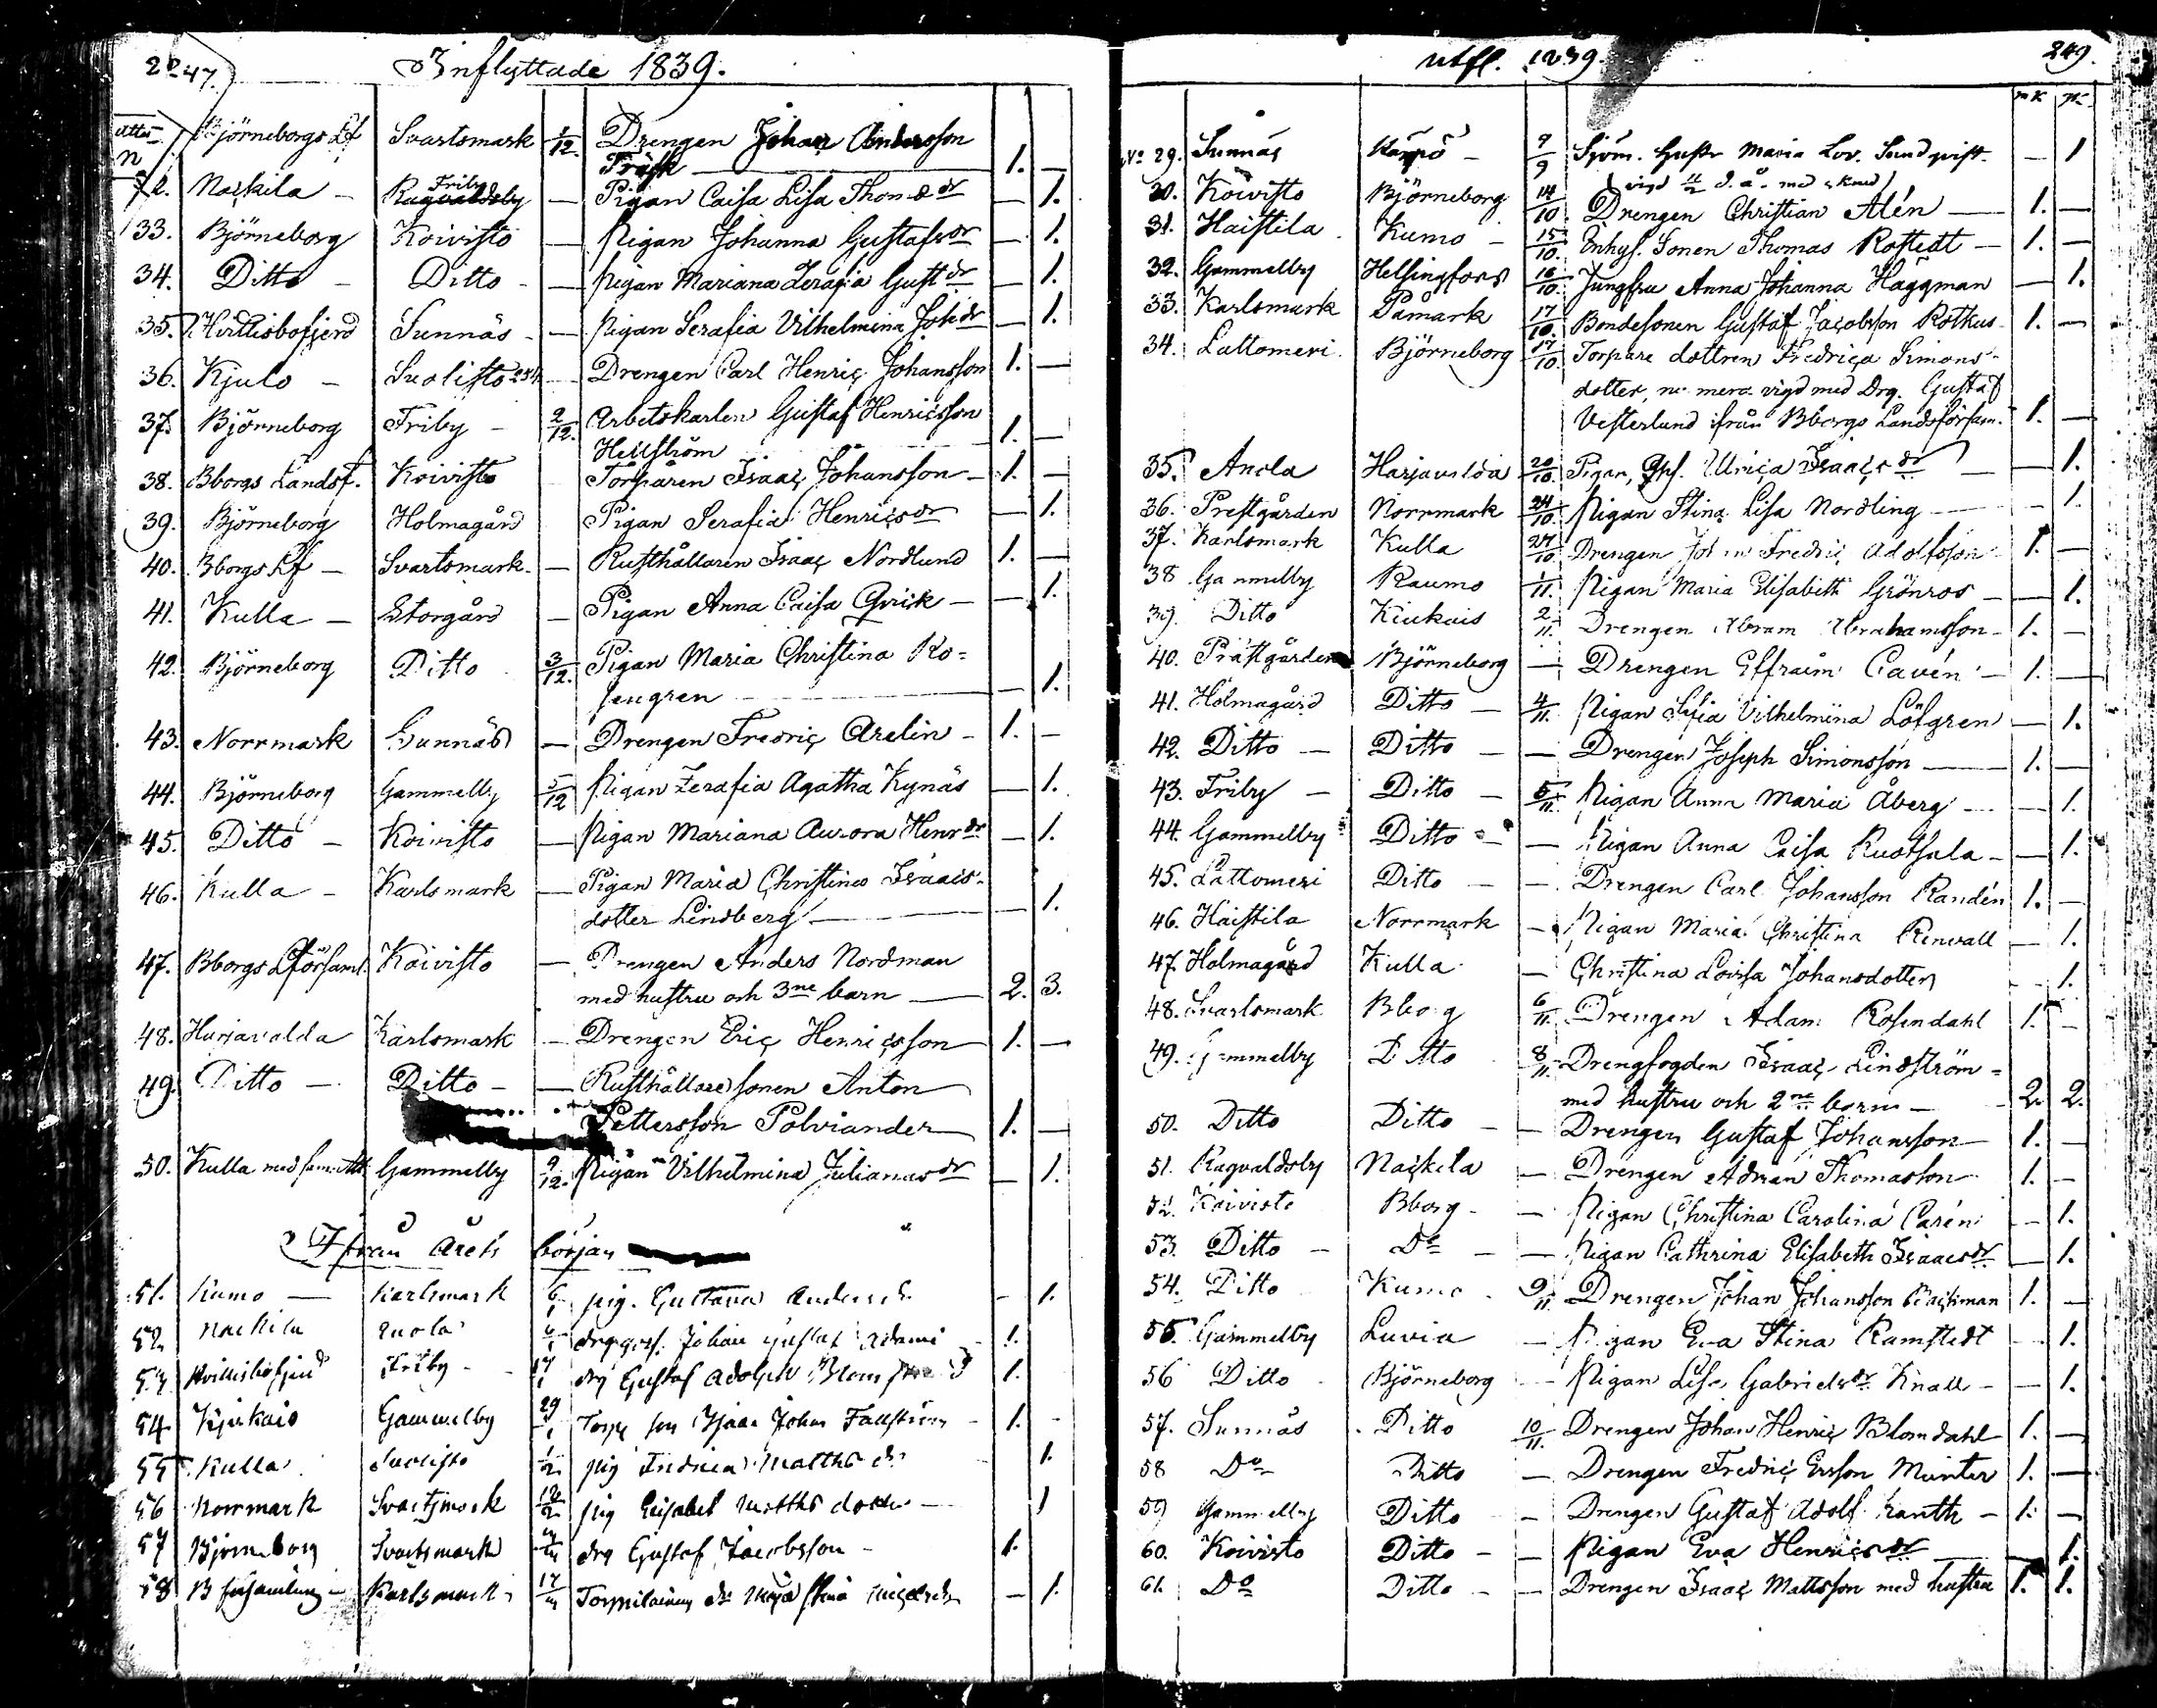 247. Inflyttade 1839.
Björneborgs Lf Svartsmark 1/12. Drengen Johan Andersson
Träsk — 1. —
Naskila — Friby Ragvaldsby — Pigan Caisa Lisa Thomædr — 1.
33. Björneborg Koivisto — Pigan Johanna Gustafsdr — 1.
34. Ditto — Ditto — Pigan Mariana Serafia Gustdr — 1.
35. Hvittisbofjerd Sunnäs — Pigan Serafia Vilhelmina Johdr — 1.
36. Kjulo — Suolisto 254 — Drengen Carl Henric Johansson 1. —
37. Björneborg Friby — 2/12. Arbetskarlen Gustaf Henricsson
Hellström 1. —
38. Bborgs Landsf. Koivisto Torparen Isaac Johansson — 1. —
39. Björneborg Holmagård Pigan Serafia Henricsdr — 1.
40. Bborgs Lf — Svartsmark — Rusthållaren Isaac Nordlund 1. —
41. Kulla — Storgård — Pigan Anna Caisa Qvick — — 1.
42. Björneborg Ditto 3/12. Pigan Maria Christina Ro=
sengren — — 1.
43. Norrmark Sunnäs — Drengen Fredric Arelin — 1. —
44. Björneborg Gammelby 5/12 Pigan Zerafia Agatha Kynäs — 1.
45. Ditto — Koivisto — Pigan Mariana Aurora Henrdr — 1.
46. Kulla — Karlsmark — Pigan Maria Christina Isaacs-
dotter Lindberg — — 1.
47. Bborgs Lförsaml. Koivisto — Drengen Anders Nordman
med hustru och 3ne barn — 2. 3.
48. Harjavalda Karlsmark — Drengen Eric Henricsson 1. —
49. Ditto — Ditto — — Rusthållaresonen Anton
Pettersson Polviander 1. —
50. Kulla Gammelby 9/12. Pigan Vilhelmina Julianasdr — 1.
Ifrån Årets början
51. Kumo — Karlsmark 6/1 pig. Gustava Andersdr — 1.
52. Naskila Anola 6/1 Johan Gustaf Adami 1.
53 Hvittisbofjerd Friby — 17/1 drg Gustaf Adolph 1.
54 Kjukais Gammelby 29/1 Johan 1. —
55. Kulla Suolisto 1/2 pig Fredrica Matthsdr 1.
56 Norrmark Svartsmark 12/2 pig Elisabet Matths dotter — 1
57 Björneborg Svartsmark drg Gustaf Jacobsson — 1.
58 B församling — Karlsmark Maja Stina — 1.
utfl. 1839. 249.
mk qk
No 29. Sunnäs Karpö — 9/9 Sjöm. hustr Maria Lov. Sundqvist — 1
30. Koivisto Björneborg 14/10. Drengen Christian Alén — 1. —
31. Haistila Kumo — 15/10. Enhys. Sonen Thomas Rostedt — 1. —
32. Gammelby Helsingfors 16/10. Jungfru Anna Johanna Häggman — 1.
33. Karlsmark Påmark 17/10. Bondesonen Gustaf Jacobsson Rotkus 1. —
34. Lattomeri Björneborg 17/10. Torpare dottren Fredrica Simons-
dotter, nu mera vigd med Drg. Gustaf
Vesterlund ifrån Bborgs Landsförsam. 1. —
35. Anola Harjavalda 20/10. Pigan, Ulrica Isaacsdr — 1.
36. Prestgården Norrmark 24/10. Pigan Stina Lisa Nordling — 1.
37. Karlsmark Kulla 27/10. Drengen Johan Fredric Adolfsson 1. —
38 Gammelby Raumo 1/11. Pigan Maria Elisabeth Grönroos — 1.
39. Ditto Kiukais 2/11. Drengen Abram Abrahamsson — 1. —
40. Prästgården Björneborg — Drengen Effraim Cavén — 1. —
41. Holmagård Ditto — 4/11. Pigan Sofia Vilhelmina Löfgren — 1.
42. Ditto — Ditto — — Drengen Joseph Simonsson — 1. —
43. Friby — Ditto — 5/11. Pigan Anna Maria Åberg — — 1.
44. Gammelby Ditto — — Pigan Anna Caisa Ruotsala — — 1.
45. Lattomeri Ditto — — Drengen Carl Johansson Randén 1. —
46. Haistila Norrmark — Pigan Maria Christina Renvall — 1.
47. Holmagård Kulla — Christina Lovisa Johansdotter — 1.
48. Svartsmark Bborg 6/11. Drengen Adam Rosendahl 1. —
49. Gammelby Ditto 8/11. Drengfogden Isaac Lindström
med hustru och 2ne barn — 2. 2.
50. Ditto Ditto — — Drengen Gustaf Johansson 1. —
51. Ragvaldsby Naskila — Drengen Adrian Thomasson 1. —
52. Koivisto Bborg — — Pigan Christina Carolina Carén — 1.
53. Ditto — Do — — Pigan Cathrina Elisabeth Isaacsdr — 1.
54. Ditto Kumo 9/11. Drengen Johan Johansson Backman 1. —
55. Gammelby Luvia — Pigan Eva Stina Ramstedt — 1.
56 Ditto Björneborg — Pigan Lisa Gabrielsdr Knall — — 1.
57. Sunnäs Ditto 10/11. Drengen Johan Henric Blomdahl 1. —
58 Do Ditto — Drengen Fredric Ersson Munter 1. —
59 Gammelby Ditto — Drengen Gustaf Adolf Kanth — 1. —
60. Koivisto Ditto — — Pigan Eva Henricsdr — 1.
61. Do Ditto — — Drengen Isaac Mattsson med hustru 1. 1.